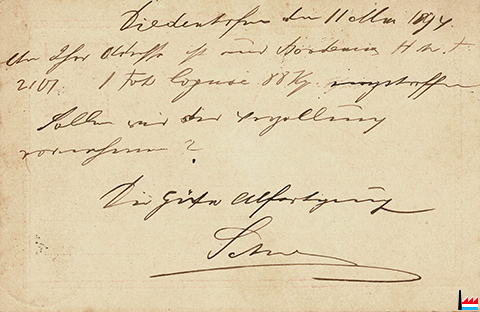 Diedenhofen den 11 Mai 1894
An Ihre Adresse ist aus Bordeaux H. M. †
2101 1 Faß Cognac 88 Kg. eingetroffen
Sollen wir die Verzollung
vornehmen?
Die Güter Abfertigung